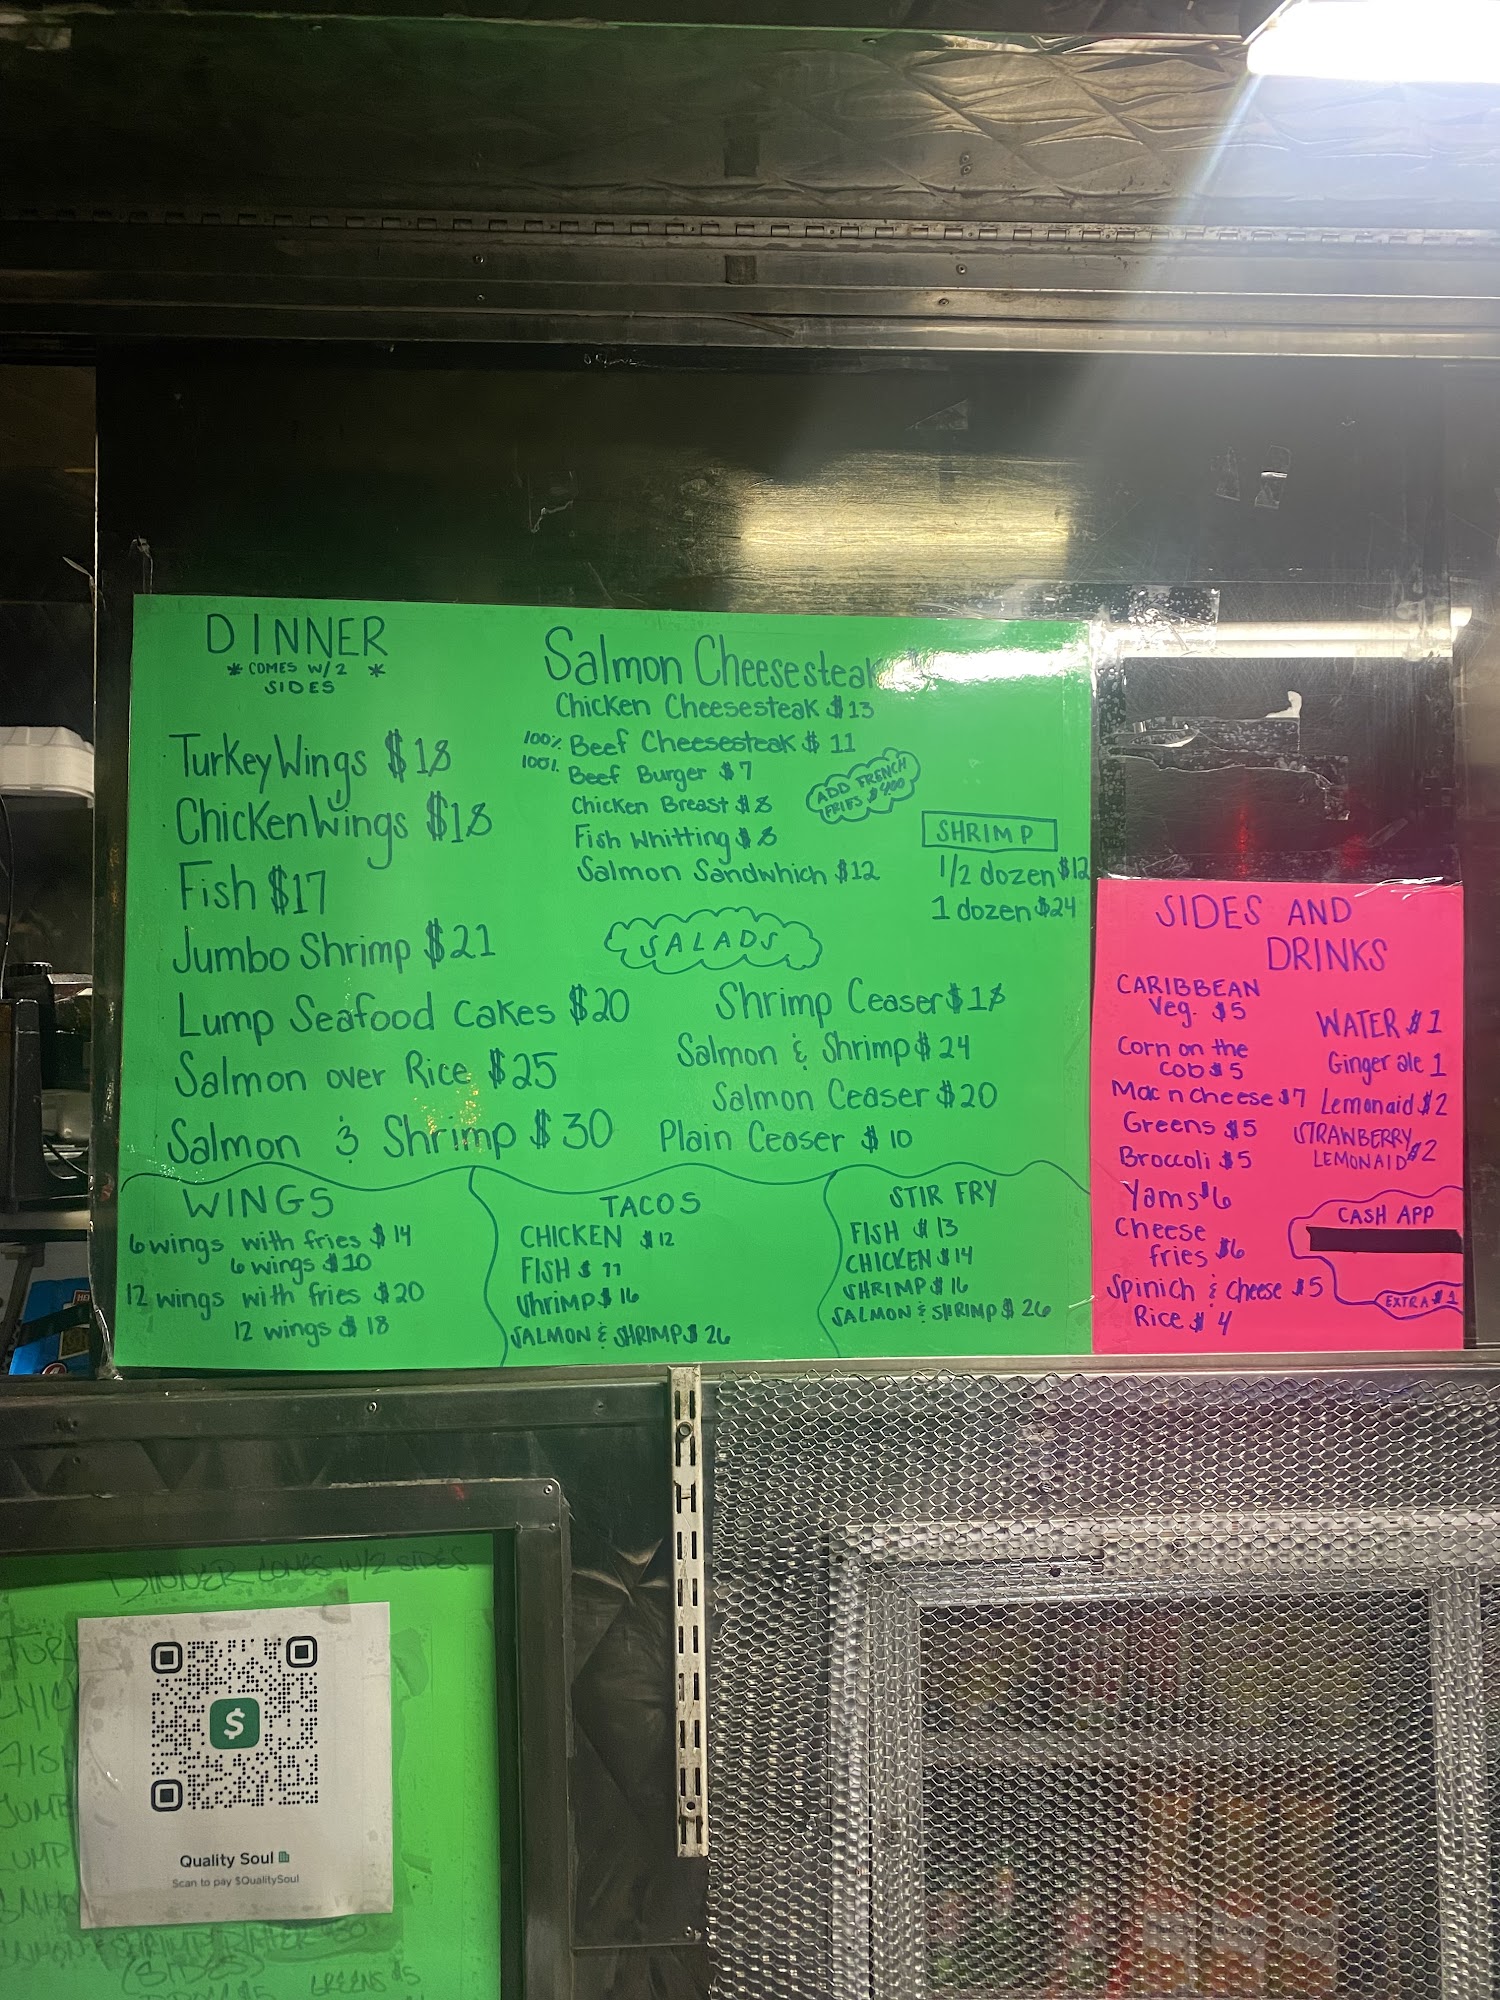 DINNER
* COMES W/ 2 *
SIDES
Turkey Wings $18
Chicken Wings $18
Fish $17
Jumbo Shrimp $21
Lump Seafood Cakes $20
Salmon over Rice $25
Salmon & Shrimp $30
Salmon Cheesesteak
Chicken Cheesesteak $13
100% Beef Cheesesteak $ 11
100% Beef Burger $7
Chicken Breast $8
Fish Whitting $8
Salmon Sandwhich $12
ADD FRENCH
FRIES $400
SHRIMP
1/2 dozen $12
1 dozen $24
SALADS
Shrimp Ceaser $18
Salmon & Shrimp $24
Salmon Ceaser $20
Plain Ceaser $10
WINGS
6 wings with fries $14
6 wings $10
12 wings with fries $20
12 wings $18
TACOS
CHICKEN $12
FISH $ 11
ShrimP $16
SALMON & SHRIMP $26
STIR FRY
FISH $13
CHICKEN $14
SHRIMP $16
SALMON & SHRIMP $26
SIDES AND
DRINKS
CARIBBEAN
Veg. $5
Corn on the
cob $5
Mac n cheese $7
Greens $5
Broccoli $5
Yams $6
Cheese
fries $6
Spinich & Cheese $5
Rice $4
WATER $1
Ginger ale 1
Lemonaid $2
STRAWBERRY
LEMONAID $2
CASH APP
EXTRA $1
DINNER COMES W/2 SIDES
$
Quality Soul
Scan to pay $QualitySoul
(SIDES)
GREENS $5